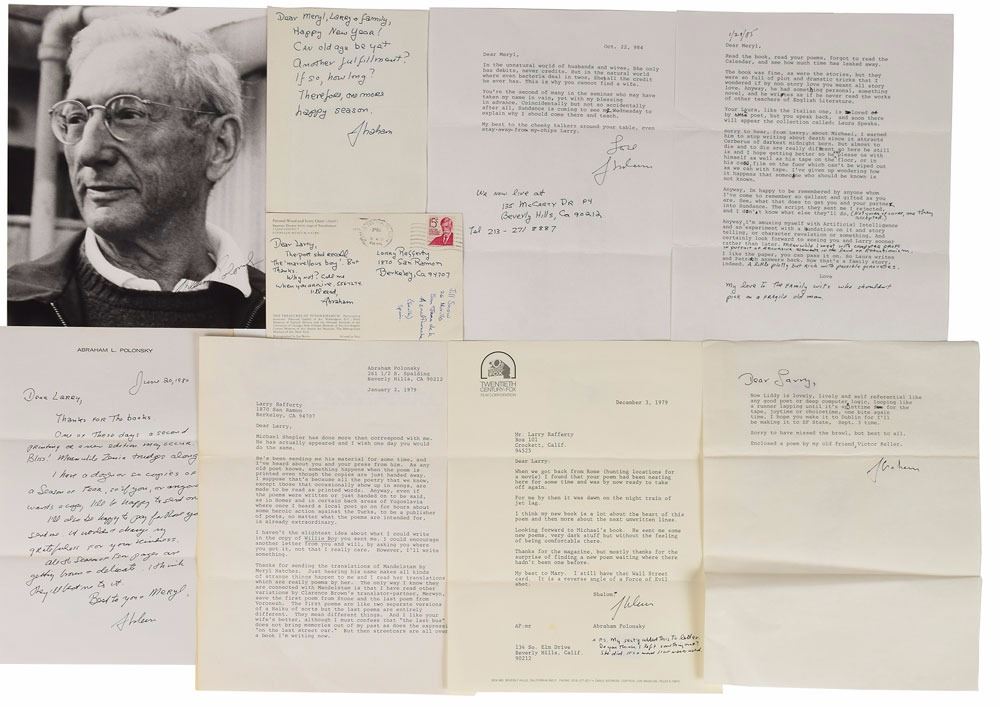 Dear Meryl, Larry & family,
Happy New Year!
Can old age be yet
Another fulfillment?
If so, how long?
Therefore, one more
happy season.
Abraham
Oct. 22, 984
Dear Meryl,
In the unnatural world of husbands and wives, She only
has debits, never credits. But in the natural world
where even bacteria deal in twos, She all the credit
he ever has. This is why you cannot find a wife.
You're the second of many in the seminar who may have
taken my name in vain, yet with my blessing
in advance. Coincidentally but not so accidentally
after all, Sundance is coming on Wednesday to
explain why I should come there and teach.
My best to the cheeky talkers around your table, even
stay-away-from-my-chips Larry.
Love
Abraham
We now live at
135 McCarty DR #4
Beverly Hills, Ca 90212
Tel 213-271 8887
1/29/85
Dear Meryl,
Read the book, read your poems, forgot to read the
Calendar, and see how much time has leaked away.
The book was fine, as were the stories, but they
were so full of plot and dramatic tricks that I
wondered if my non story love you meant all story
love. Anyway, he had something personal, something
novel, and he writes as if he never read the works
of other teachers of English Literature.
Your Laura, like the Italian one, is beloved of
by poet, but you speak back, and soon there
will appear the collection called: Laura Speaks.
Sorry to hear, from Larry, about Michael, I warned
him to stop writing about death since it attracts
Cerberus of darkest midnight born. But almost to
die and to die are really different so here he still
is and I hope getting better so he please us with
himself as well as his tape on the floor, or in
his file on the floor which can't be wiped out
as we can with tape. I've given up wondering how
it happens that someone who should be known is
not known.
Anyway, Im happy to be remembered by anyone whom
I've come to remember so gallant and gifted as you
are. See, what that does to get you and your partner
into Sundance. The script they sent me I rejected,
and I don't know what else they'll do.
Anyway, I'm amusing myself with Artificial Intelligence
and an experiment with a foundation on it and story
telling, or character revelation or something. And
certainly look forward to seeing you and Larry sooner
rather than later.
I like the paper, you can paint on it. So Laura writes
and Patrick answers back. Now that's a family story,
indeed.
Love
My love to the family wits who shouldn't
pick on a fragile old man.
Dear Larry,
Thanks.
Why not? Call me
when you arrive.
Abraham
Larry Rafferty
1870 San Ramon
Berkeley, CA 94707
THE TREASURES OF TUTANKHAMUN
ABRAHAM L. POLONSKY
June 20, 1980
Dear Larry,
Thanks for the books
One of these days a second
printing or a new edition may occur.
Bliss! Meanwhile Zenia trudges along
I have a dozen or so copies of
a Season of Fear, so if you, or anyone
wants a copy, I'll be happy to send one
I'll also be happy to pay for that you
send me. It wouldn't change my
gratefulness for your kindness.
Best to you & Meryl.
Abraham
Abraham Polonsky
261 1/2 S. Spalding
Beverly Hills, CA 90212
January 2, 1979
Larry Rafferty
1870 San Ramon
Berkeley, CA 94707
Dear Larry,
Michael Shepler has done more than correspond with me.
He has actually appeared and I wish one day you would
do the same.
He's been sending me his material for some time, and
I've heard about you and your press from him. As any
old poet knows, something happens when the poem is
printed even though the copies are just handed away.
I suppose that's because all the poetry that we know,
except those that occasionally show up in songs, are
made to be read as printed words. Anyway, even if
the poems were written or just handed on to be said,
as in Homer and in certain back areas of Yugoslavia
where once I heard a local poet go on for hours about
some heroic action against the Turks, to be a publisher
of poets, no matter what the poems are intended for
is already extraordinary.
I haven't the slightest idea about what I could write
in the copy of Willie Boy you would send me. I could encourage
another letter from you and will, by asking you where
you got it, not that I really care. However, I'll write
something.
Thanks for sending the translations of Mandelstam by
Meryl Natchez. Just hearing his name makes all kinds
of strange things happen to me and I read her translations
which are really poems by her. The only way I know they
are connected with Mandelstam is that I have read other
variations by Clarence Brown's translator-partner, Merwyn,
save the first poem from Stone and the last poem from
Voronezh. The first poems are like two separate versions
of a Haiku of sorts but the last poems are entirely
different. They mean different things. And I like your
wife's better, although I must confess that "the last bus"
does not bring memories out of my past as does the expression
"on the last street car." But then streetcars are all over
a book I'm writing now.
TWENTIETH
CENTURY-FOX
FILM CORPORATION
December 3, 1979
Mr. Larry Rafferty
Box 101
Crockett, Calif.
94525
Dear Larry,
When we got back from Rome (hunting locations for
a movie) I found that your poem had been nesting
here for some time and was by now ready to take
off again.
For me by then it was dawn on the night train of
jet lag.
I think my new book is a lot about the heart of this
poem and then more about the next unwritten lines.
Looking forward to Michael's book. He sent me some
new poems, very dark stuff but without the feeling
of being comfortable there.
Thanks for the magazine, but mostly thanks for the
surprise of finding a new poem waiting where there
hadn't been one before.
My best to Mary. I still have that Wall Street
card. It is a reverse angle of a Force of Evil
shot.
Shalom,
Abraham
AP:mr
Abraham Polonsky
134 So. Elm Drive
Beverly Hills, Calif.
90212
P.S. My secty added this to letter.
Do you think I left something out?
Dear Larry,
Now Liddy is lovely, lively and self referential like
any good poet or deep computer logic, looping like
a runner lapping until it's time for the
tape, joytime or choicetime, one bite again
time. I hope you make it to Dublin for I'll
be making it to SF State, Sept. 3 time.
Sorry to have missed the brawl, but best to all.
Enclosed a poem by my old friend, Victor Keller.
Abraham